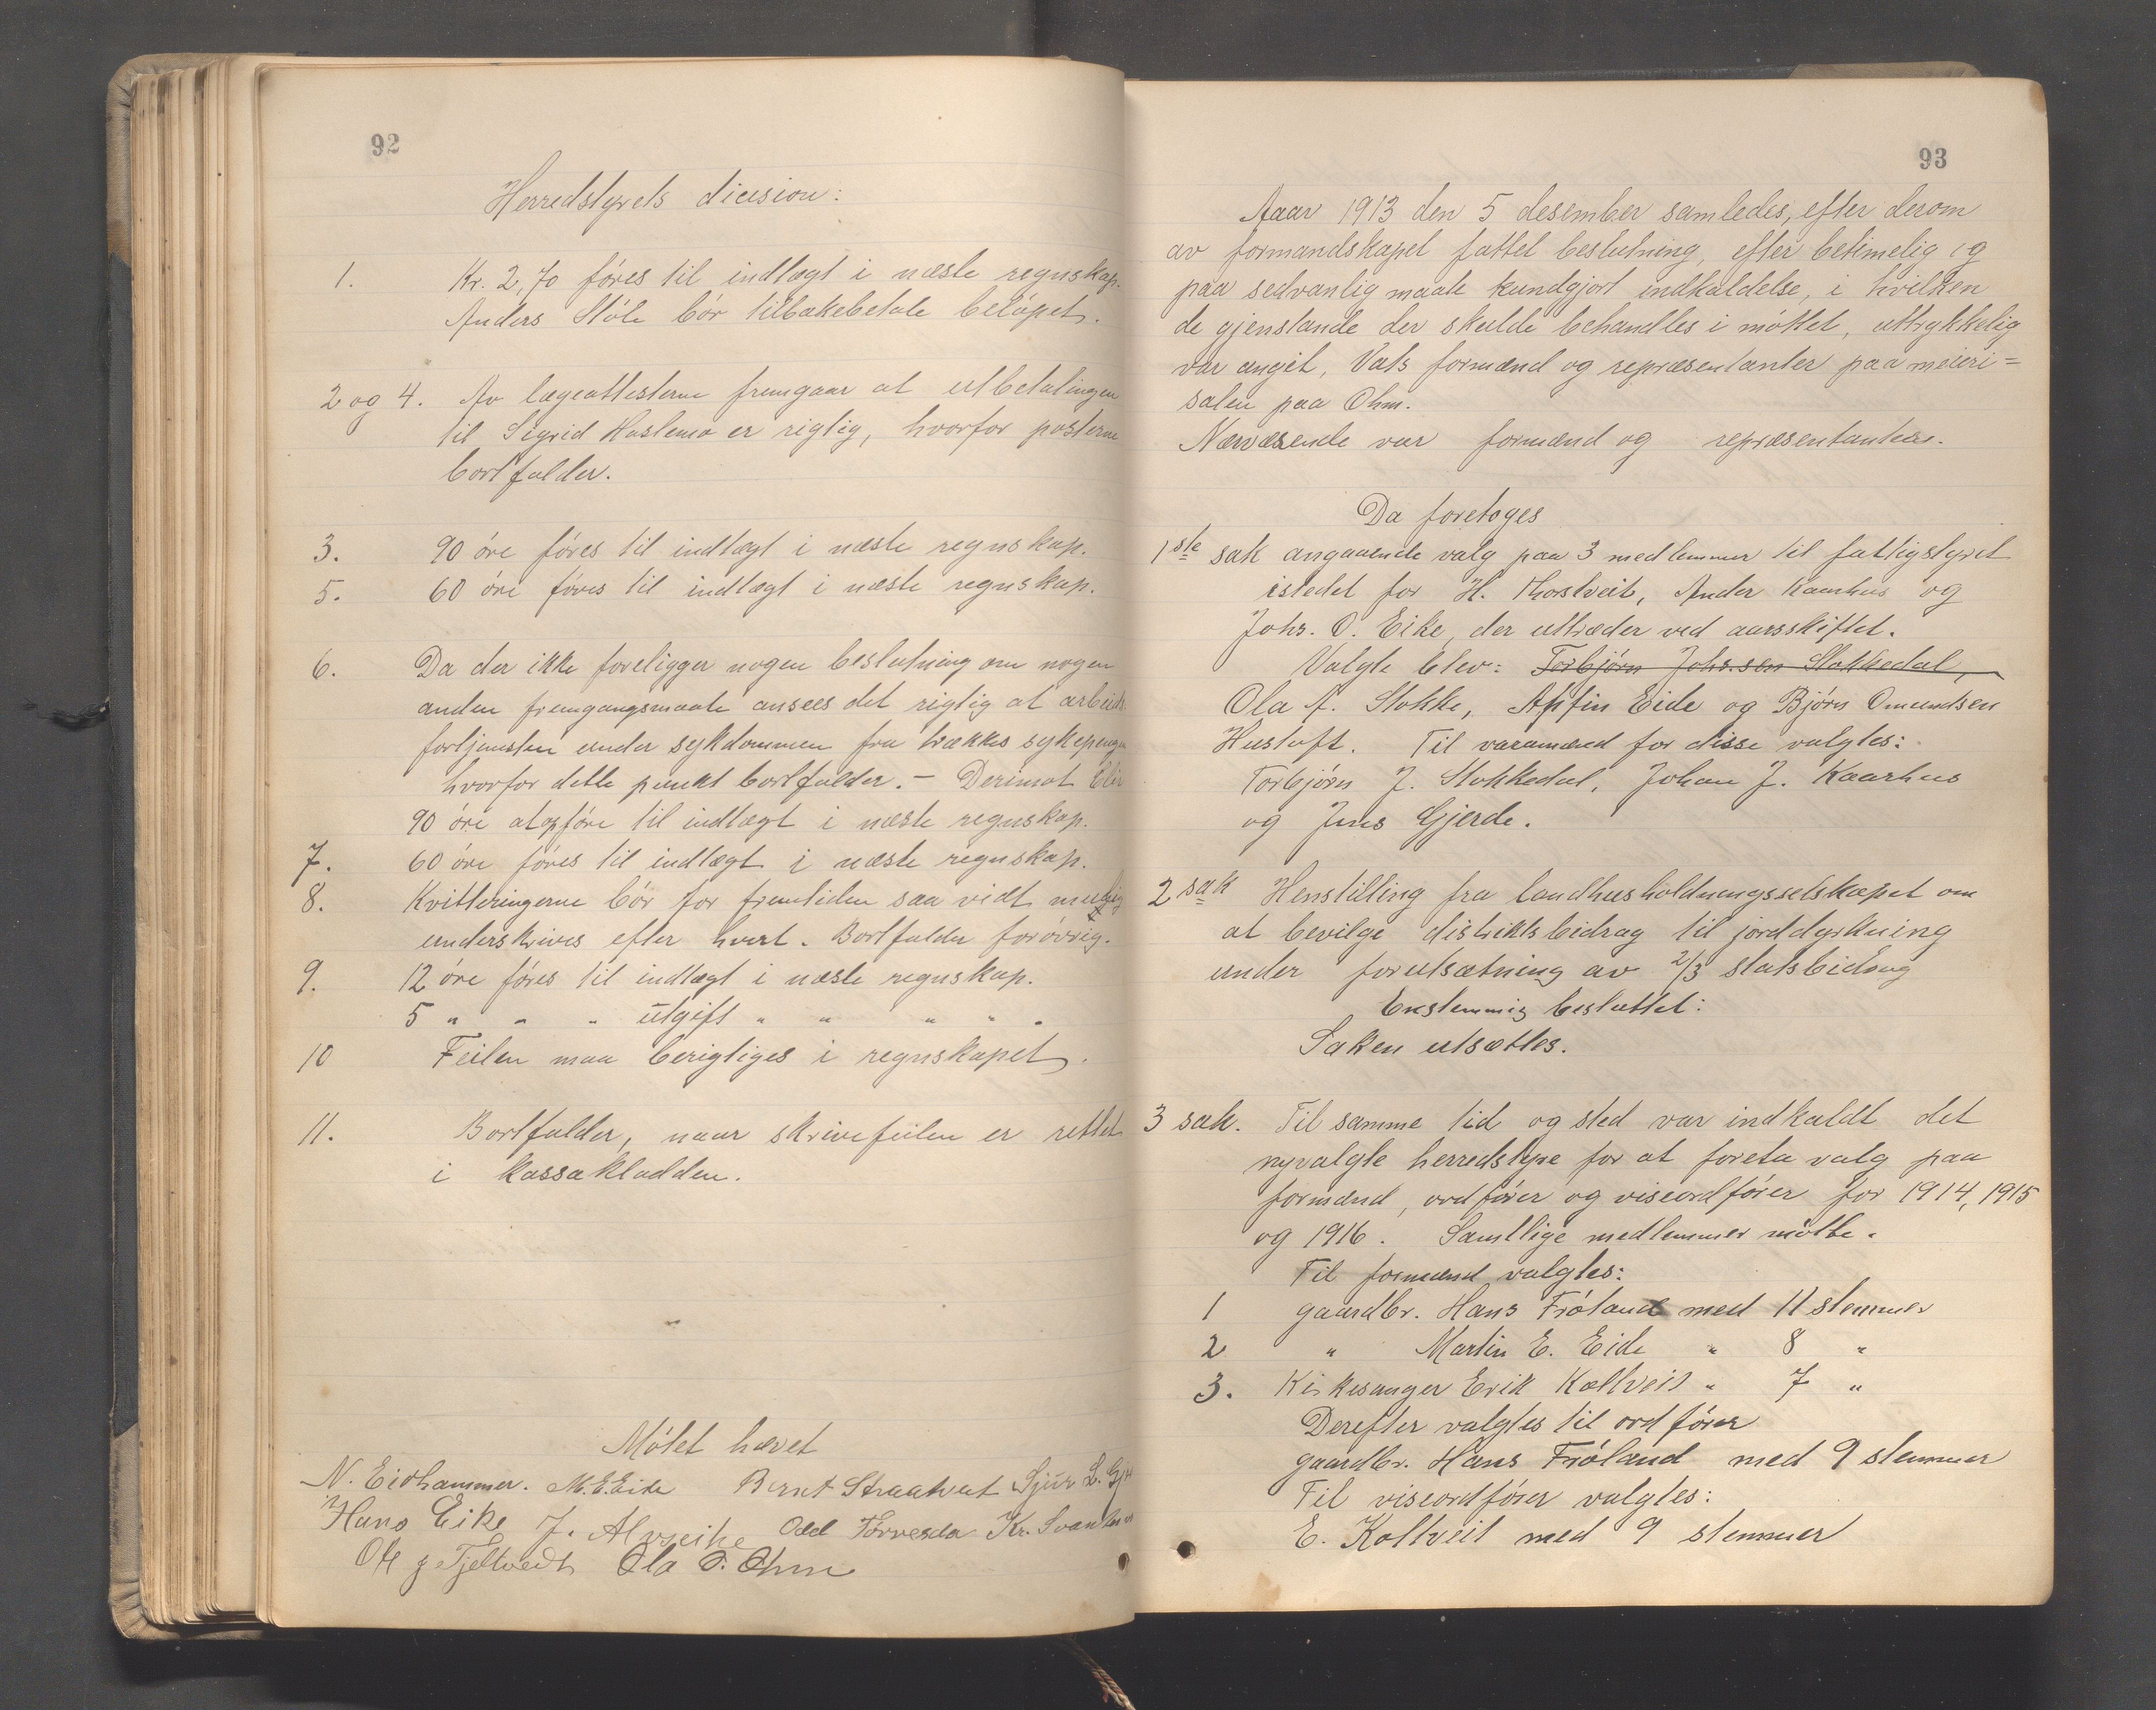 92
Herredstyrets dicision:
1. Kr. 2,70 föres til indtægt i næste regnskap.
Anders Stöle bör tilbakebetale belöpet.
2 og 4. Av lægeattesterne fremgaar at utbetalingen
til Sigrid Haslemo er rigtig, hvorfor posterne
bortfalder.
3. 90 öre föres til indtægt i næste regnskap.
5. 60 öre föres til indtægt i næste regnskap.
6. Da der ikke foreligger nogen beslutning om nogen
anden fremgangsmaate ansees det rigtig at arbeids
fortjensten under sykdommen fra trækkes sykepenge
hvorfor dette punkt bortfalder. – Derimot blir
90 öre at opföre til indtægt i næste regnskap.
7. 60 öre föres til indtægt i næste regnskap.
8. Kvitteringerne bör for fremtiden saa vidt mulig
underskrives efter hvert. Bortfalder forövrig.
9. 12 öre föres til indtægt i næste regnskap.
5 " " " utgift " " " " "
10 Feilen maa berigtiges i regnskapet.
11. Bortfalder, naar skrivefeilen er rettet
i kassakladden.
Mötet hævet
N. Eidhammer. M. E. Eide Bernt Straatveit Sjur L.
Hans Eike J. Alvseike Odd Törresdal Kr.
Ole J. Tjeltveit Ola O. Ohm
93
Aaar 1913 den 5 desember samledes, efter derom
av formandskapet fattet beslutning, efter betimelig og
paa sedvanlig maate kundgjort indkaldelse, i hvilken
de gjenstande der skulde behandles i möttet, uttrykkelig
var angit, Vats formænd og repræsentanter paa meieri=
salen paa Ohm.
Nærværende var formænd og repræsentanter.
Da foretoges
1ste sak angaaende valg paa 3 medlemmer til fattigstyret
istedet for H. Thorstveit, Ander Kaarhus og
Johs. O. Eike, der uttræder ved aarsskiftet.
Valgte blev: Torbjörn Johs.sen Stokkedal,
Ola A. Stokke, Apfin Eide og Björn Omundsen
Hustoft. Til varamænd for disse valgtes:
Torbjörn J. Stokkedal, Johan J. Kaarhus
og Jens Gjerde.
2 sak Henstilling fra landhusholdningsselskapet om
at bevilge distriktsbidrag til jorddyrkning
under forutsætning av 2/3 statsbidrag
Enstemmig besluttet:
Saken utsættes.
3 sak. Til samme tid og sted var indkaldt det
nyvalgte herredstyre for at foreta valg paa
formænd, ordförer og viseordförer for 1914, 1915
og 1916. Samtlige medlemmer mötte.
Til formænd valgtes:
1 gaardbr. Hans Fröland med 11 stemmer
2 " Martin E. Eide " 8 "
3. Kirkesanger Erik Koltveit " 7 "
Derefter valgtes til ordförer
gaardbr. Hans Fröland med 9 stemmer
Til viseordförer valgtes:
E. Koltveit med 9 stemmer